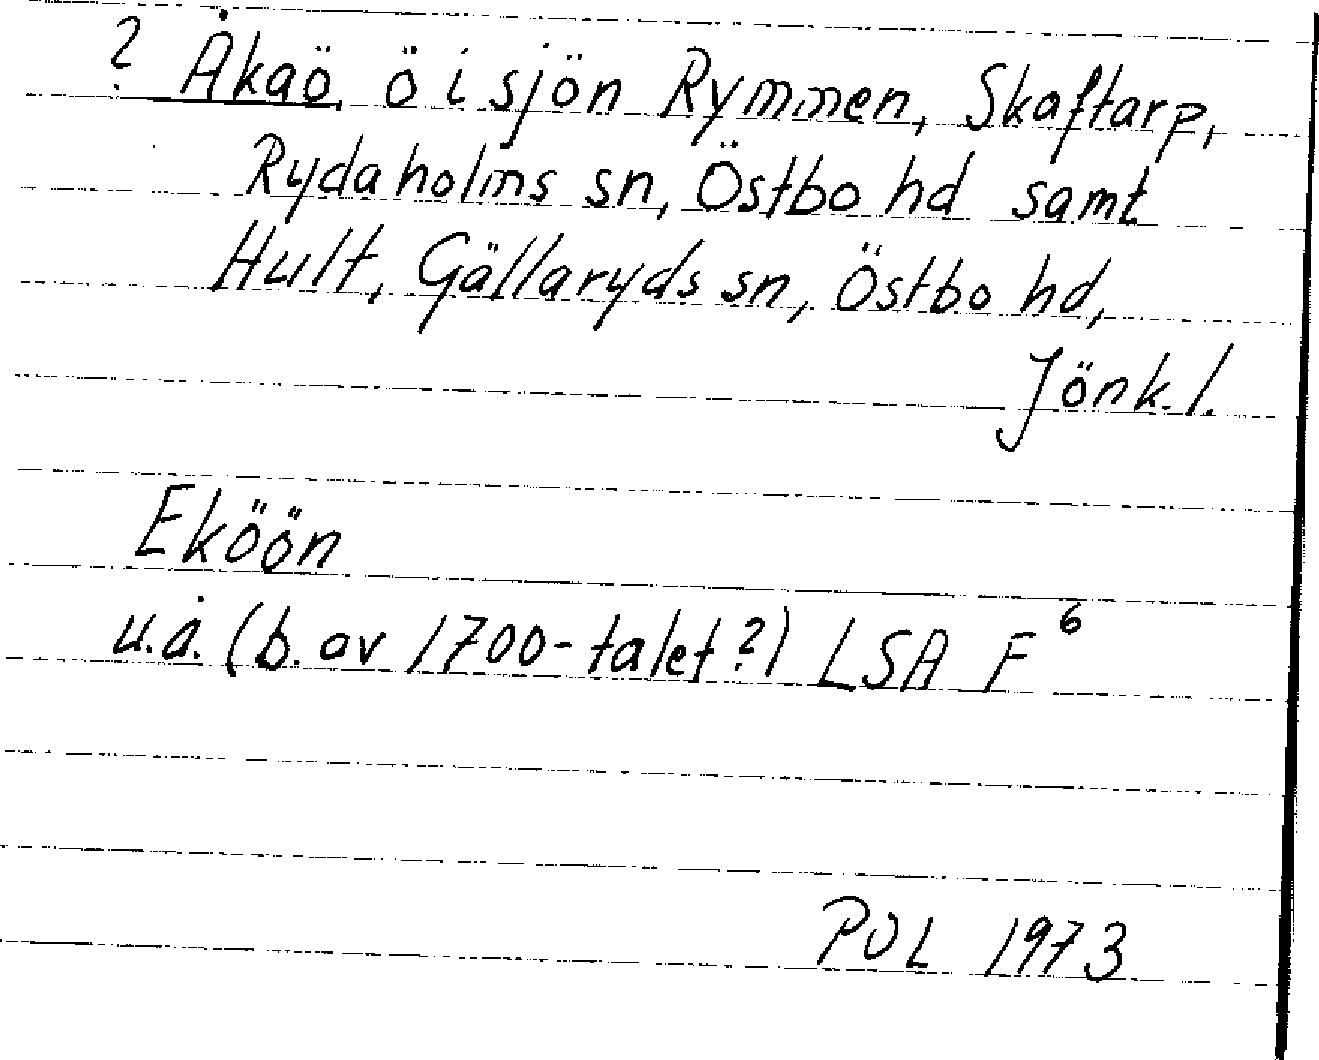 ? Åkaö, ö i sjön Rymmen, Skaftarp,
Rydaholms sn, Östbo hd samt
Hult, Gällaryds sn, Östbo hd,
Jönk. l.
Eköön
u.å. (b. av 1700-talet?) LSA F⁶
POL 1973